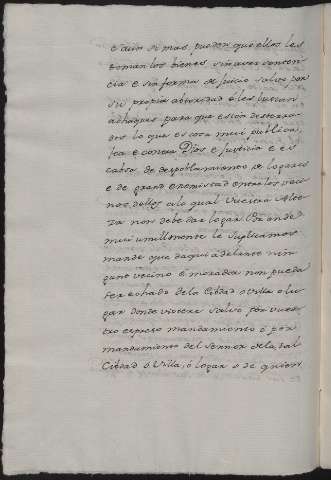 e aun si mas, pueden que ellos les
toman los bienes sin aver senten-
cia e sin forma de juicio salvo por
su propia abtoridad e les buscan
achaques para que esten desterra-
dos lo que es cosa mui publica,
fea e contra Dios e justicia e es
cabsa de despoblamiento de logares
e de grand enemistad entre los veci-
nos dellos a lo qual Vuestra Alte-
za non debe dar logar Por ende
mui umillmente le suplicamos
mande que daqui adelante nin-
gunt vecino e morador non pueda
ser echado de la Cibdad o Villa o lu-
gar donde viviere salvo por vues-
tro expreso mandamiento ó por
mandamiento del Sennor de la tal
Cibdad o Villa, ó logar o de quien